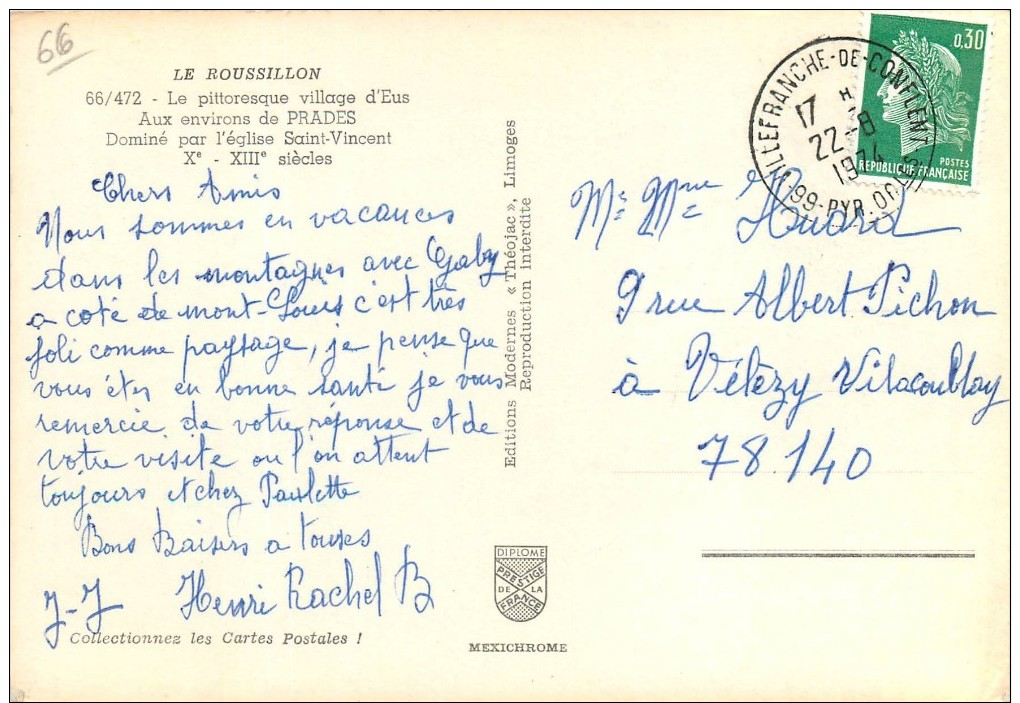 66
LE ROUSSILLON
66/472 - Le pittoresque village d'Eus
Aux environs de PRADES
Dominé par l'église Saint-Vincent
Xe - XIIIe siècles
Chers Amis
Nous sommes en vacances
dans les montagnes avec Gaby
a coté de mont-Louis c'est très
joli comme paysage, je pense que
vous êtes en bonne santé je vous
remercie de votre réponse et de
votre visite ou l'on attent
toujours et chez Paulette
Bons Baisers a toutes
J-J Henri Rachel B
Collectionnez les Cartes Postales !
Editions Modernes « Théojac », Limoges
Reproduction interdite
DIPLOME
PRESTIGE
DE LA
FRANCE
MEXICHROME
VILLEFRANCHE-DE-CONFLENT
17 H
22-8
1974
66-PYR. ORIENTALES
0,30
POSTES
REPUBLIQUE FRANÇAISE
Mr Mme Huard
9 rue Albert Pichon
à Vélézy Vilacoublay
78.140